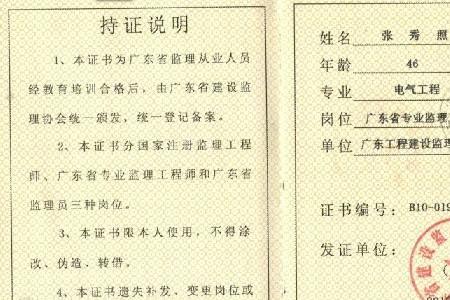 持证说明
1、本证书为广东省监理从业人员
经教育培训合格后，由广东省建设监
理协会统一颁发，统一登记备案。
2、本证书分国家注册监理工程
师、广东省专业监理工程师和广东省
监理员三种岗位。
3、本证书限本人使用，不得涂
改、伪造、转借。
4、本证书遗失补发、变更岗位或
姓名 张秀照
年龄 46
专业 电气工程
岗位 广东省专业监理
单位 广东工程建设监理
证书编号：B10-019
发证单位：
省建设监